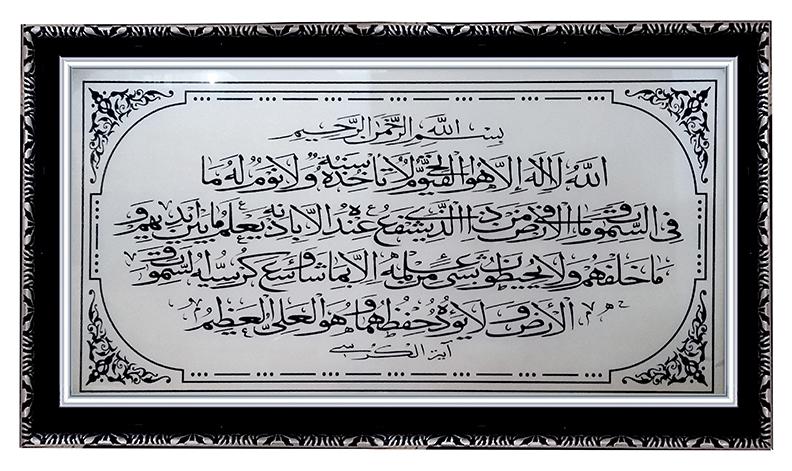 بسم الله الرحمن الرحيم
الله لا إله إلا هو الحي القيوم لا تأخذه سنة ولا نوم له ما
في السموات وما في الأرض من ذا الذي يشفع عنده إلا بإذنه يعلم ما بين أيديهم و
ما خلفهم ولا يحيطون بشيء من علمه إلا بما شاء وسع كرسيه السموات و
الأرض ولا يؤده حفظهما وهو العلي العظيم
آية الكرسي